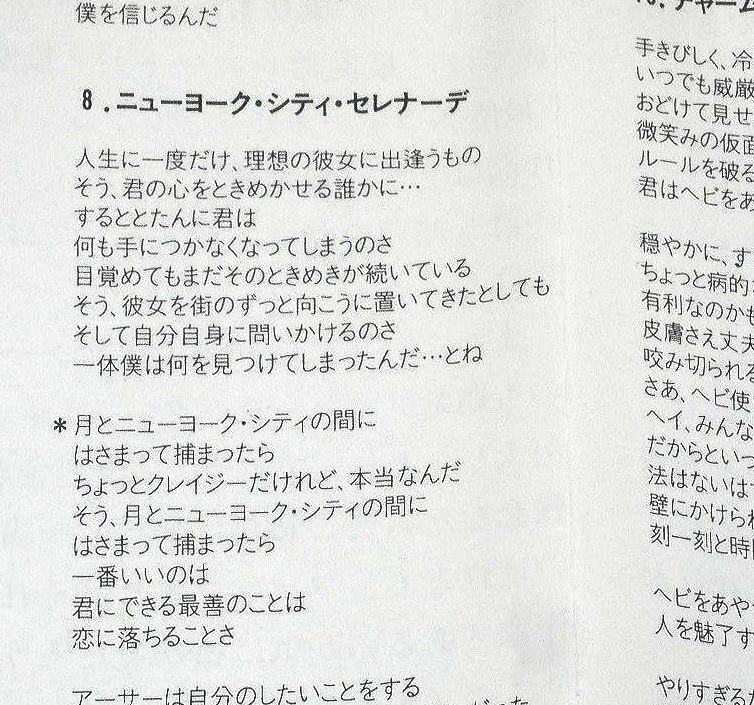 僕を信じるんだ
8.ニューヨーク・シティ・セレナーデ
人生に一度だけ、理想の彼女に出逢うもの
そう、君の心をときめかせる誰かに…
するととたんに君は
何も手につかなくなってしまうのさ
目覚めてもまだそのときめきが続いている
そう、彼女を街のずっと向こうに置いてきたとしても
そして自分自身に問いかけるのさ
一体僕は何を見つけてしまったんだ…とね
*月とニューヨーク・シティの間に
はさまって捕まったら
ちょっとクレイジーだけれど、本当なんだ
そう、月とニューヨーク・シティの間に
はさまって捕まったら
一番いいのは
君にできる最善のことは
恋に落ちることさ
アーサーは自分のしたいことをする
手きびしく、冷
いつでも威厳
おどけて見せ
微笑みの仮面
ルールを破る
君はヘビをあ
穏やかに、す
ちょっと病的
有利なのかも
皮膚さえ丈夫
咬み切られる
さあ、ヘビ使
ヘイ、みんな
だからといっ
法はないは
壁にかけられ
刻一刻と時
ヘビをあや
人を魅了す
やりすぎる